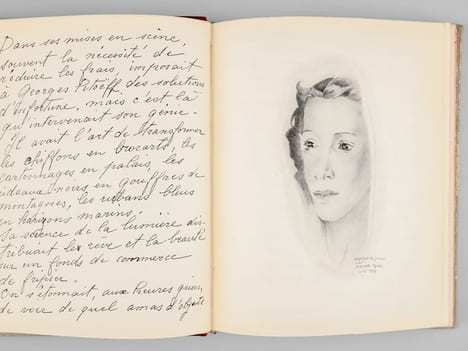 Dans ses mises en scène,
souvent la nécessité de
réduire les frais, imposait
à Georges Pitoëff des solutions
d'infortune. mais c'est là
qu'intervenait son génie.
Il avait l'art de transformer
les chiffons en brocarts, les
cartonnages en palais, les
rideaux noirs en gouffres de
montagnes, les rubans bleus
en horizons marins.
Sa science de la lumière dis-
tribuait le rêve et la beauté
sur un fonds de commerce
de fripier.
On s'étonnait, aux heures grises,
de voir de quel amas d'objets